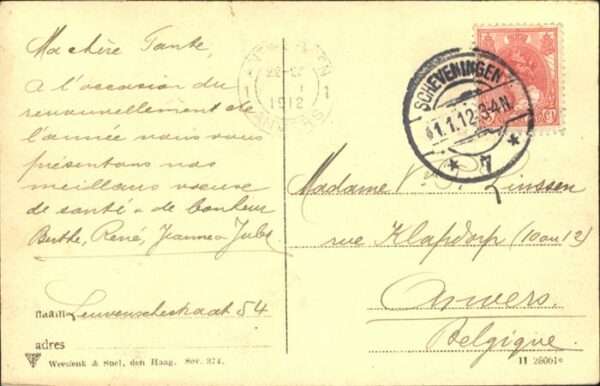 Ma chère Tante,
A l'occasion du
renouvellement de
l'année nous vous
présentons nos
meilleurs voeux
de santé & de bonheur
Berthe, René, Jeanne & Jules
naam Leuvenschestraat 54
adres
Weenenk & Snel, den Haag. Ser. 374.
1912
SCHEVENINGEN
1.1.12 3-4N
* 7 *
Madame V. Linssen
rue Klapdorp (10 ou 12)
Anvers.
Belgique.